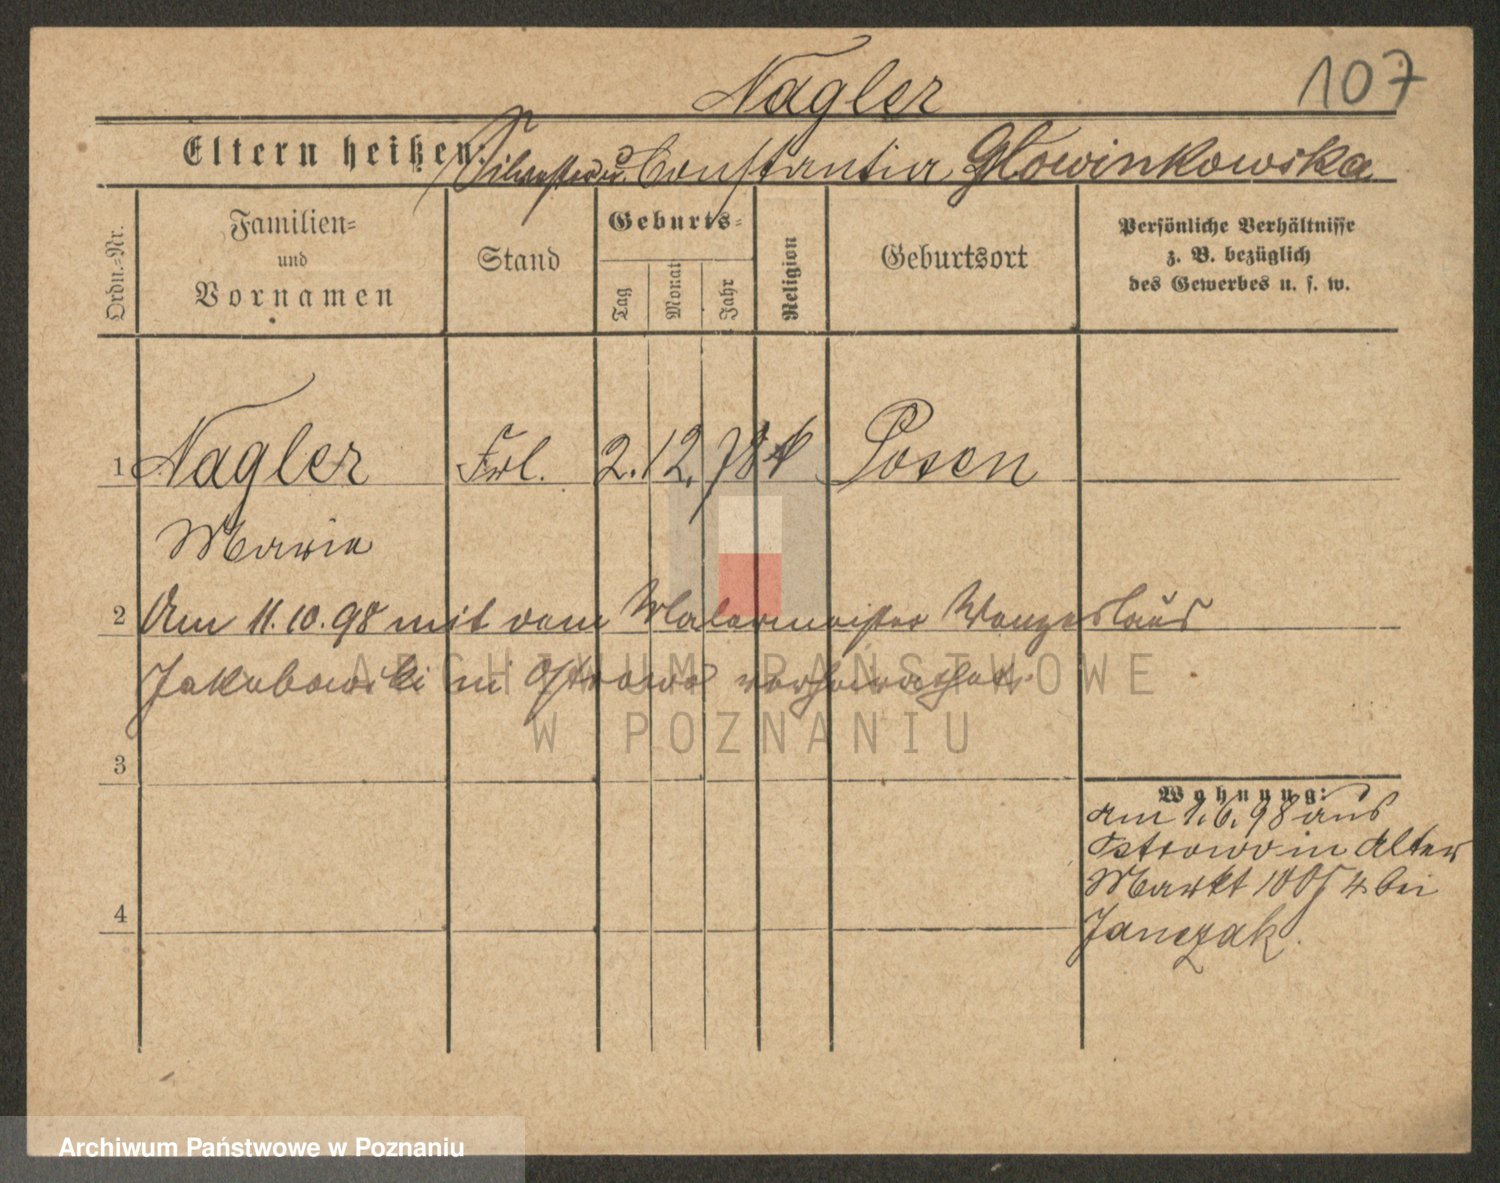 Nagler
107
Eltern heißen: Silvester u. Constantia Glowinkowska
Ordn.=Nr.
Familien=
und
Vornamen
Stand
Geburts=
Tag
Monat
Jahr
Religion
Geburtsort
Persönliche Verhältnisse
z. B. bezüglich
des Gewerbes u. s. w.
1 Nagler Frl. 2. 12. 78 k Posen
Marie
2 Am 11.10.98 mit dem Malermeister Wenzeslaus
Jakubowski in Ostrowo verheirathet.
ARCHIWUM PAŃSTWOWE
W POZNANIU
3
Wohnung:
am 1.6.98 aus
Ostrowo in Alter
Markt 100 4 bei
4
Janczak.
Archiwum Państwowe w Poznaniu